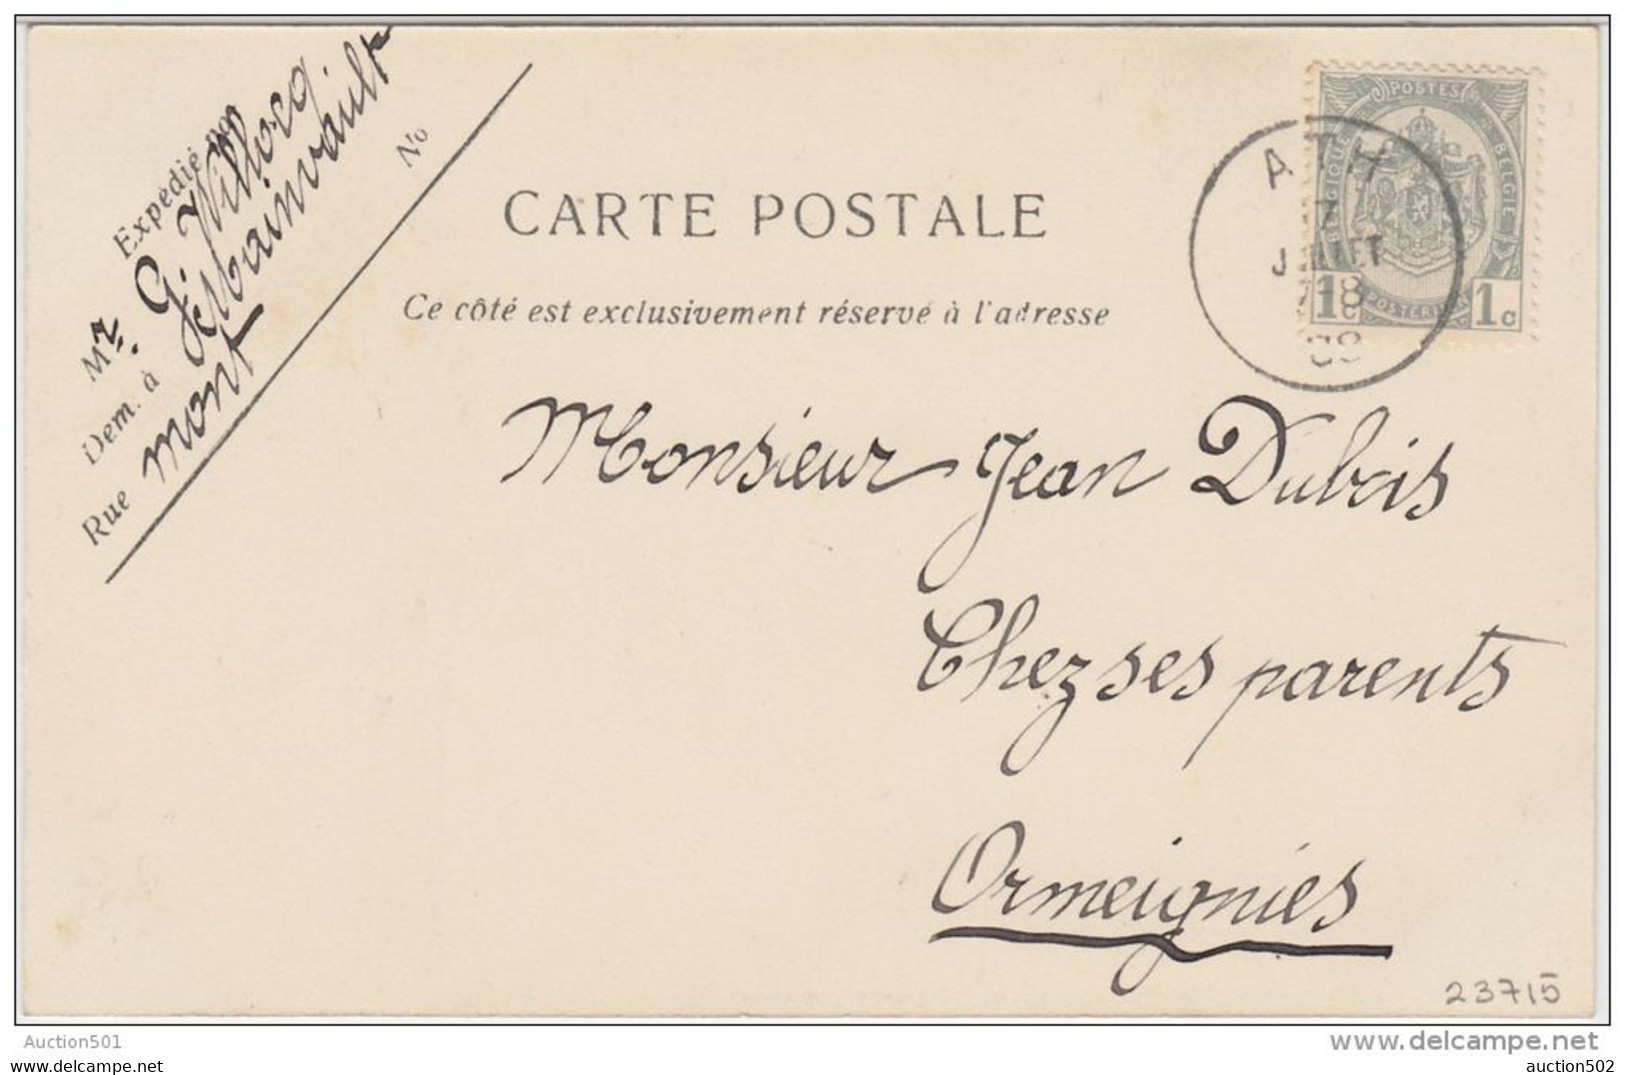 Expédié par
Mr. G. Willocq
Dem. à Gibainvault
Rue mont No
CARTE POSTALE
Ce côté est exclusivement réservé à l'adresse
POSTES
BELGIQUE
BELGIË
POSTERIJEN
1c 1c
ATH
7
JUILLET
18
08
Monsieur Jean Dubois
Chez ses parents
Ormeignies
23715
Auction501
www.delcampe.net
auction502